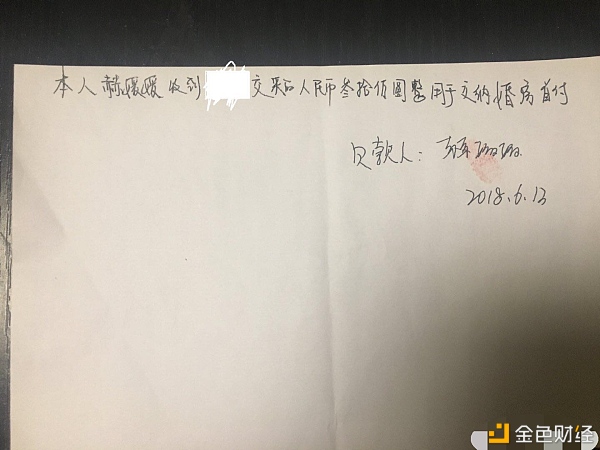 本人郝媛媛收到 交来的人民币叁拾佰圆整用于交纳婚房首付
欠款人：
2018.6.13
金色财经